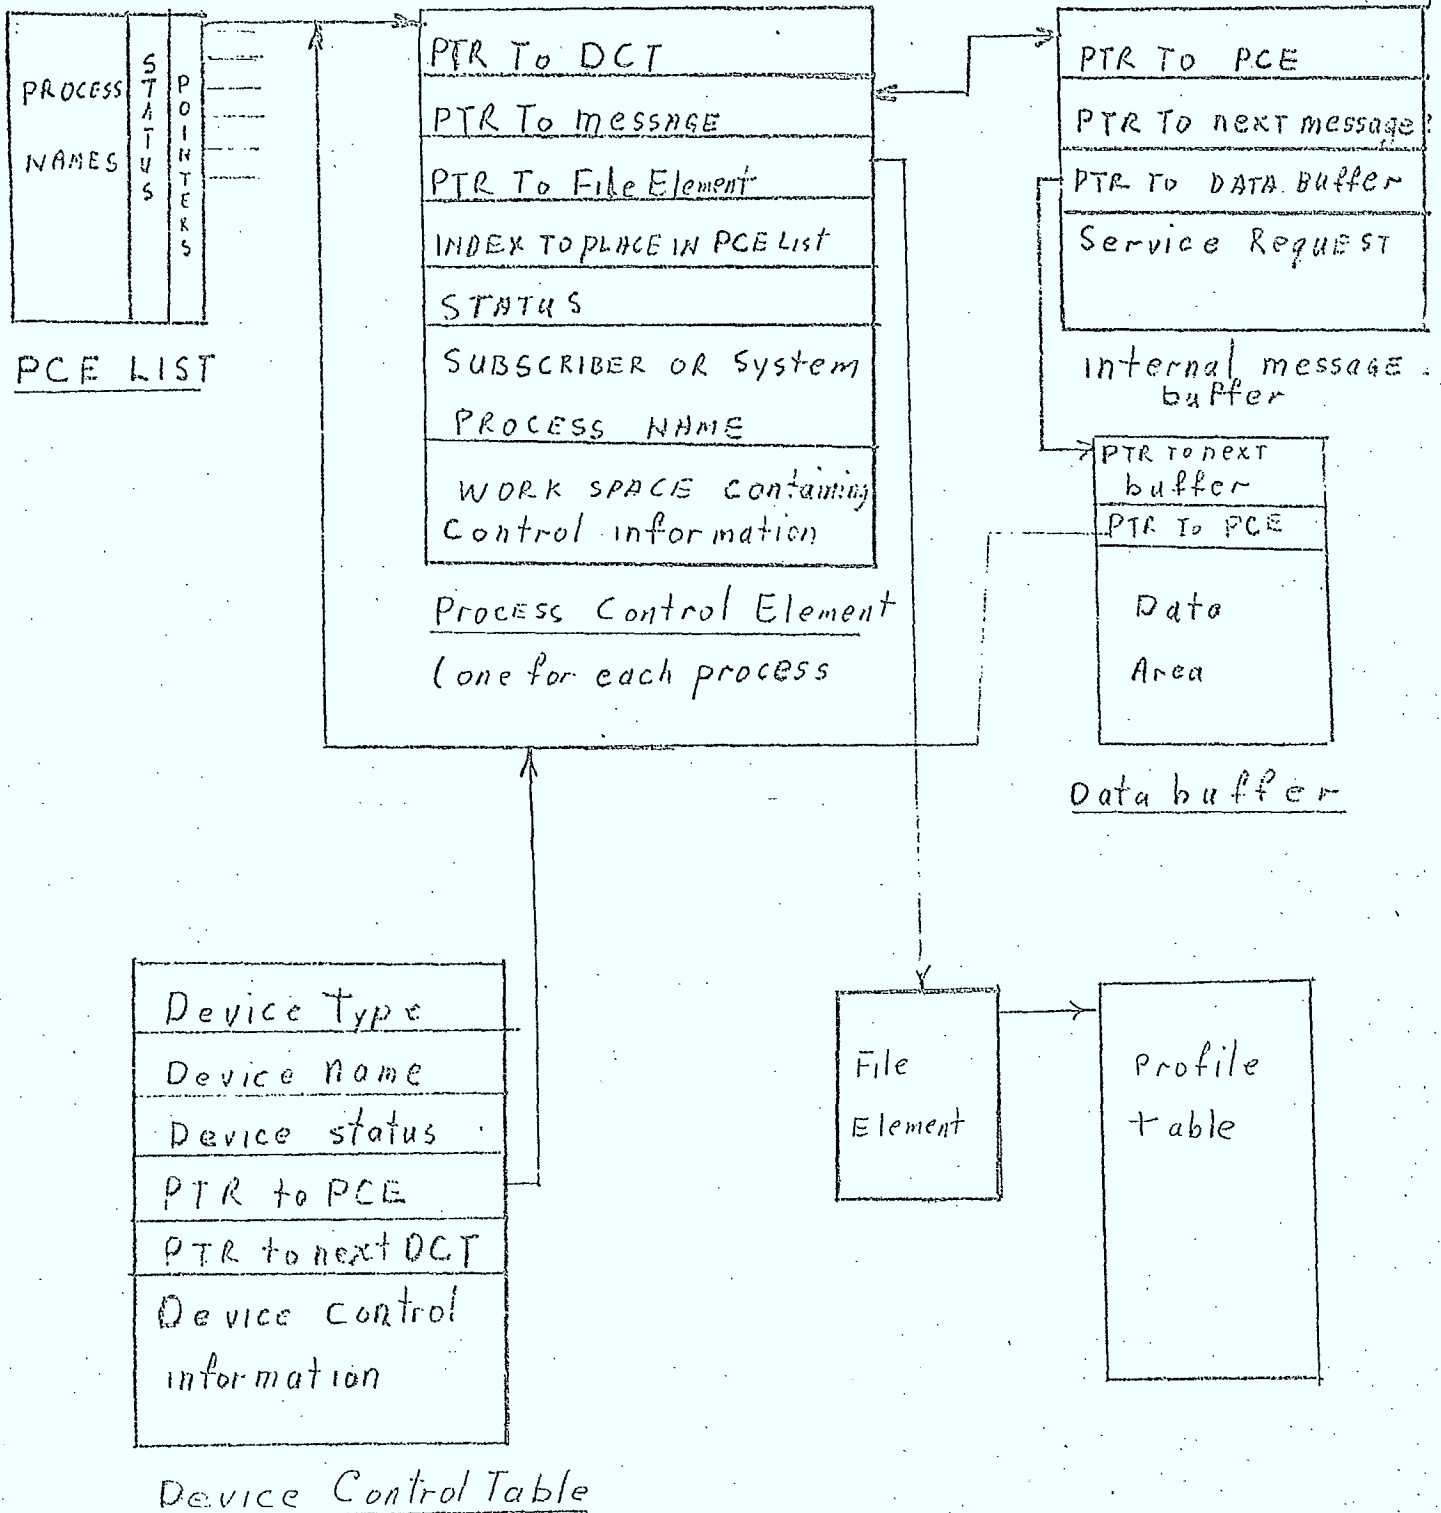 PROCESS
NAMES
STATUS
POINTERS
PCE LIST
PTR To DCT
PTR To message
PTR To File Element
INDEX TO PLACE IN PCE List
STATUS
SUBSCRIBER OR System
PROCESS NAME
WORK SPACE containing
Control information
Process Control Element
(one for each process
PTR TO PCE
PTR TO next message?
PTR TO DATA Buffer
Service REQUEST
internal message
buffer
PTR TO next
buffer
PTR To PCE
Data
Area
Data buffer
Device Type
Device name
Device status
PTR to PCE
PTR to next DCT
Device control
information
Device Control Table
File
Element
Profile
table